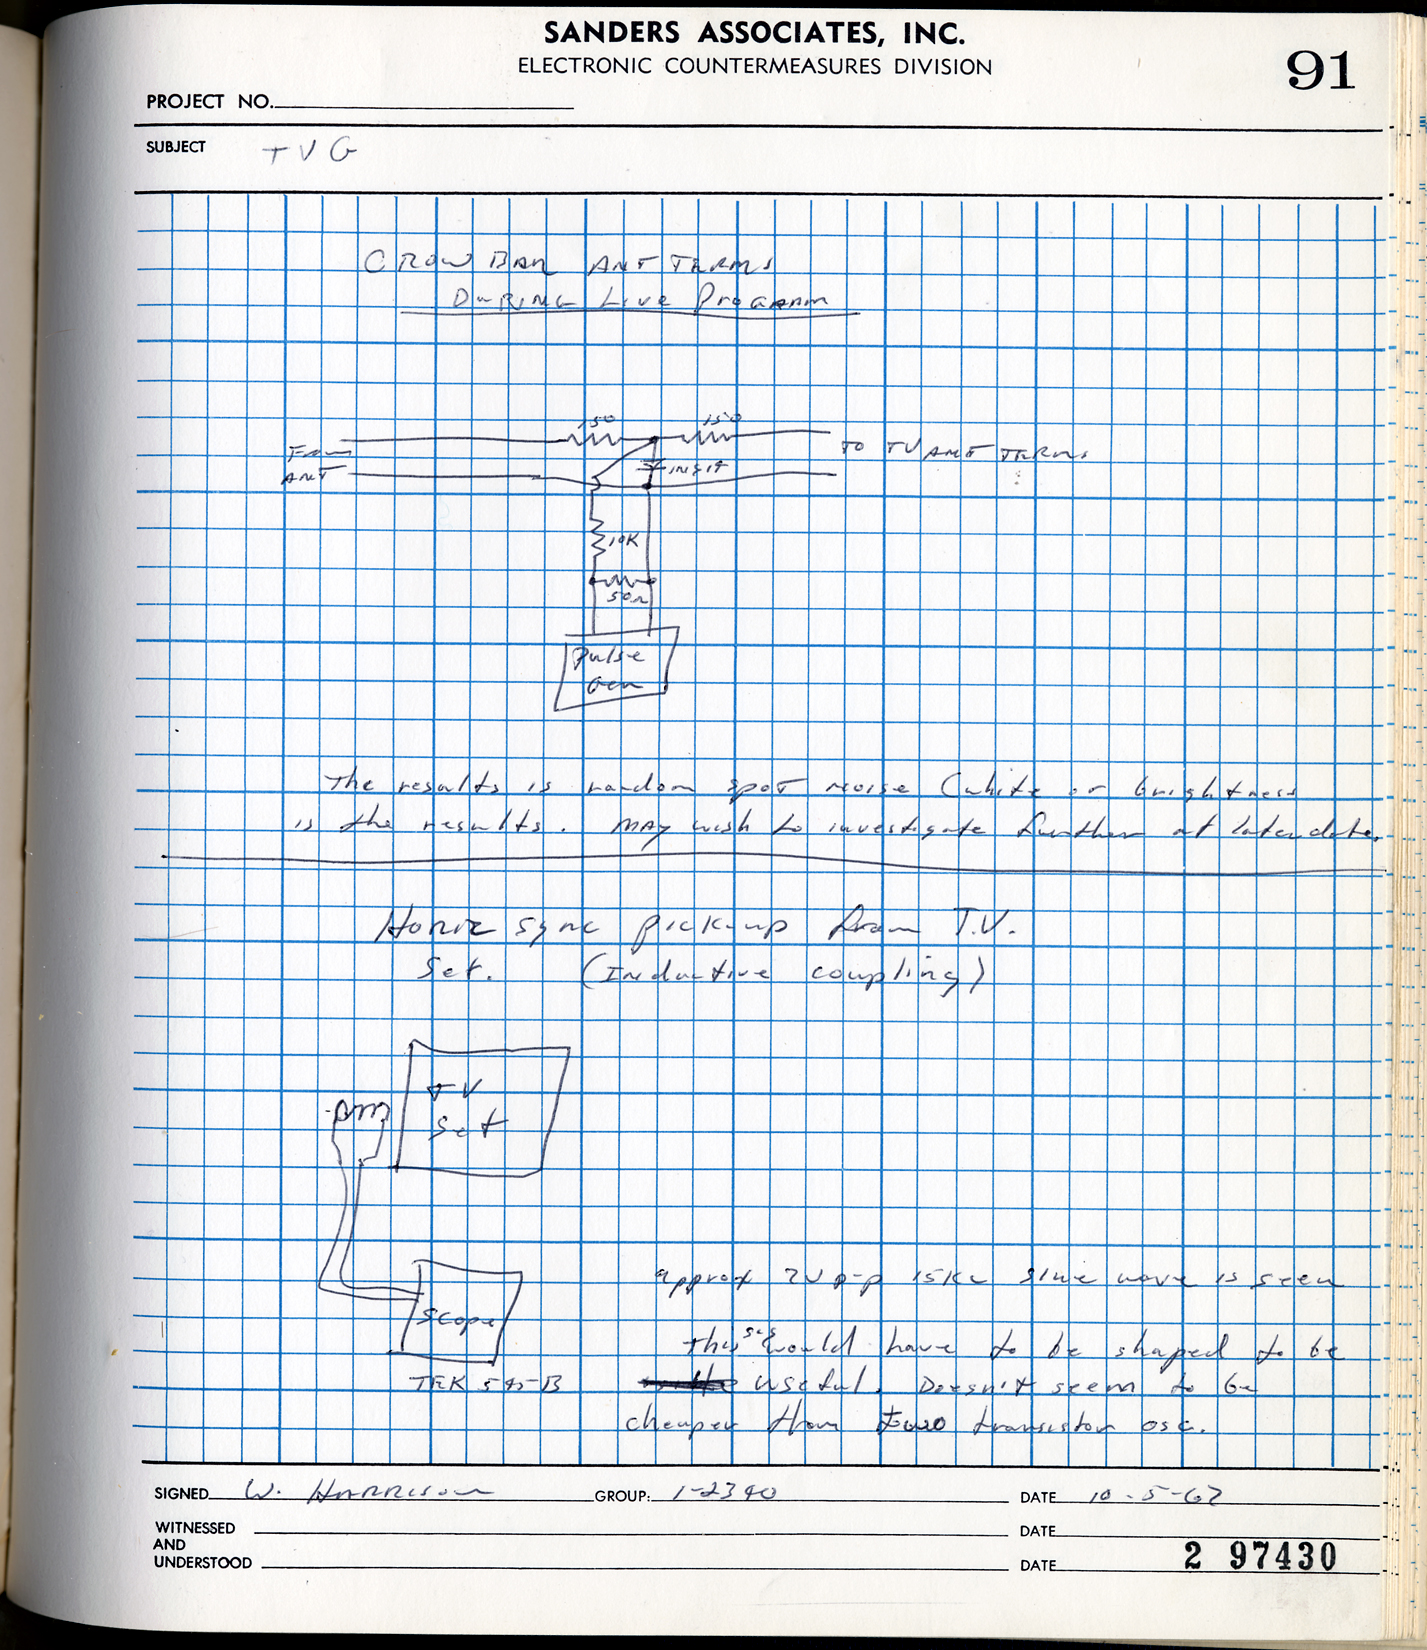 SANDERS ASSOCIATES, INC.
ELECTRONIC COUNTERMEASURES DIVISION
91
PROJECT NO.
SUBJECT TVG
CROW BAR ANT TERMS
DURING Live Program
150 150
From
ANT
TO TV ANT TERMS
10K
50Ω
Pulse
Gen
The results is random spot noise (white or brightness
is the results. MAY wish to investigate further at later date.
Horiz sync pickup from T.V.
Set. (Inductive coupling)
TV
Set
approx 2V p-p 15KC sine wave is seen
Scope
this would have to be shaped to be
TEK 545-B
useful. Doesn't seem to be
cheaper than two transistor osc.
SIGNED W. HARRISON GROUP: 1-2390 DATE 10-5-67
WITNESSED DATE
AND
UNDERSTOOD DATE 2 97430